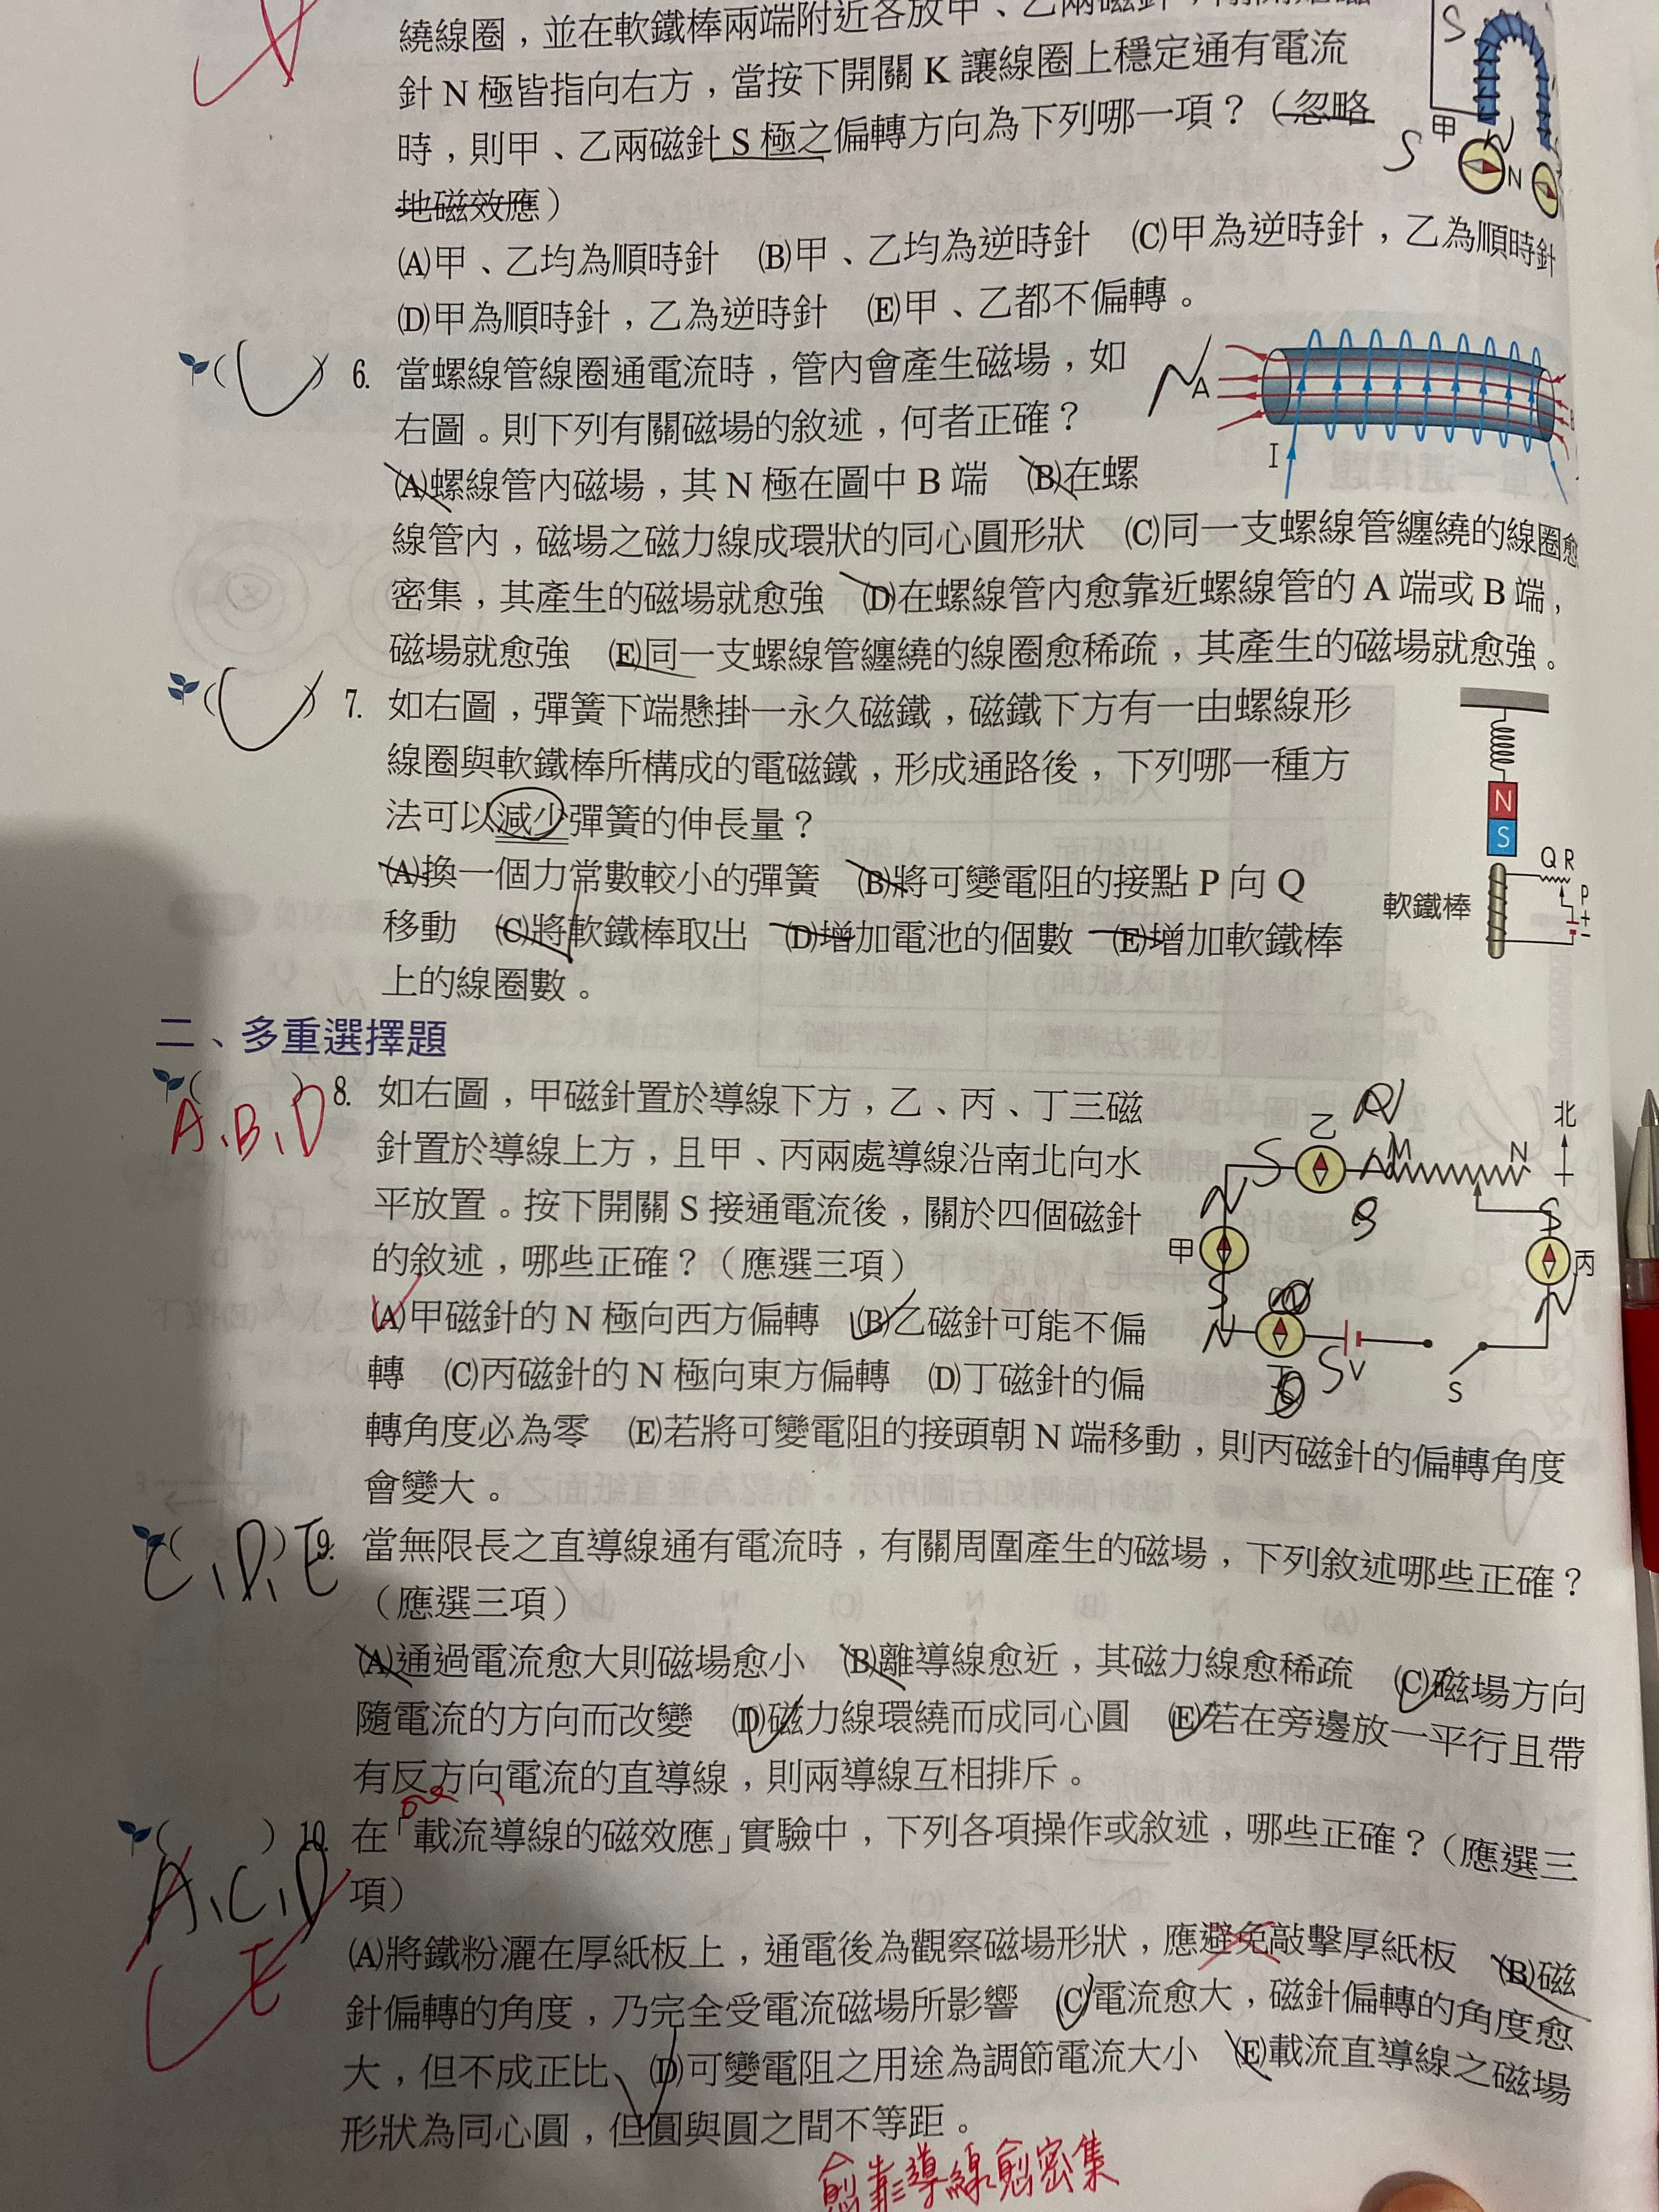 繞線圈，並在軟鐵棒兩端附近各放甲、乙兩磁針，
針 N 極皆指向右方，當按下開關 K 讓線圈上穩定通有電流
時，則甲、乙兩磁針 S 極之偏轉方向為下列哪一項？（忽略
地磁效應）
(A)甲、乙均為順時針 (B)甲、乙均為逆時針 (C)甲為逆時針，乙為順時針
(D)甲為順時針，乙為逆時針 (E)甲、乙都不偏轉。
S
甲
N
S
N
( ) 6. 當螺線管線圈通電流時，管內會產生磁場，如
右圖。則下列有關磁場的敘述，何者正確？
(A)螺線管內磁場，其 N 極在圖中 B 端 (B)在螺
線管內，磁場之磁力線成環狀的同心圓形狀 (C)同一支螺線管纏繞的線圈愈
密集，其產生的磁場就愈強 (D)在螺線管內愈靠近螺線管的 A 端或 B 端，
磁場就愈強 (E)同一支螺線管纏繞的線圈愈稀疏，其產生的磁場就愈強。
N
A
I
( ) 7. 如右圖，彈簧下端懸掛一永久磁鐵，磁鐵下方有一由螺線形
線圈與軟鐵棒所構成的電磁鐵，形成通路後，下列哪一種方
法可以減少彈簧的伸長量？
(A)換一個力常數較小的彈簧 (B)將可變電阻的接點 P 向 Q
移動 (C)將軟鐵棒取出 (D)增加電池的個數 (E)增加軟鐵棒
上的線圈數。
N
S
Q R
P
+
-
軟鐵棒
二、多重選擇題
( ) 8. 如右圖，甲磁針置於導線下方，乙、丙、丁三磁
A、B、D
針置於導線上方，且甲、丙兩處導線沿南北向水
平放置。按下開關 S 接通電流後，關於四個磁針
的敘述，哪些正確？（應選三項）
(A)甲磁針的 N 極向西方偏轉 (B)乙磁針可能不偏
轉 (C)丙磁針的 N 極向東方偏轉 (D)丁磁針的偏
轉角度必為零 (E)若將可變電阻的接頭朝 N 端移動，則丙磁針的偏轉角度
會變大。
北
乙
S
M
N
N
S
甲
丙
S
N
N
S
V
S
( ) 9. 當無限長之直導線通有電流時，有關周圍產生的磁場，下列敘述哪些正確？
C、D、E
（應選三項）
(A)通過電流愈大則磁場愈小 (B)離導線愈近，其磁力線愈稀疏 (C)磁場方向
隨電流的方向而改變 (D)磁力線環繞而成同心圓 (E)若在旁邊放一平行且帶
有反方向電流的直導線，則兩導線互相排斥。
( ) 10. 在「載流導線的磁效應」實驗中，下列各項操作或敘述，哪些正確？（應選三
A、C、D
項）
E
(A)將鐵粉灑在厚紙板上，通電後為觀察磁場形狀，應避免敲擊厚紙板 (B)磁
針偏轉的角度，乃完全受電流磁場所影響 (C)電流愈大，磁針偏轉的角度愈
大，但不成正比 (D)可變電阻之用途為調節電流大小 (E)載流直導線之磁場
形狀為同心圓，但圓與圓之間不等距。
愈靠導線愈密集